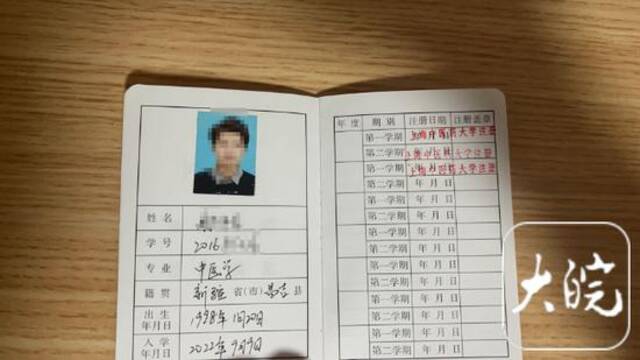 姓名
学号 2016
专业 中医学
籍贯 新疆 省(市) 昌吉 县
出生
年月日 1998年1月20日
入学
年月日 2022年9月9日
年度 期别 注册日期 注册盖章
第一学期 上海中医药大学注册
第二学期 上海中医药大学注册
第一学期 上海中医药大学注册
第二学期 年月日
第一学期 年月日
第二学期 年月日
第一学期 年月日
第二学期 年月日
第一学期 年月日
第二学期 年月日
第一学期 年月日
第二学期 年月日
第一学期 年月日
第二学期 年月日
大皖